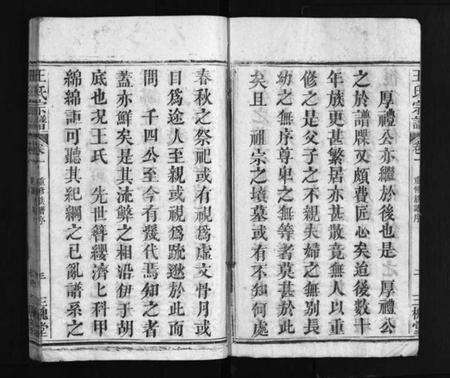 厚禮公亦繼於後也是　厚禮公
之於譜牒又頗費匠心矣迨後數十
年族更甚繁居亦甚散竟無人以重
修之是父子之不親夫婦之無別長
幼之無序尊卑之無等者莫甚於此
矣且　祖宗之墳墓或有不知何處
春秋之祭祀或有視爲虛文骨月或
目爲途人至親或視爲疏遠於此而
問　千四公至今有幾代焉知之者
蓋亦鮮矣是其流弊之相沿伊于胡
底也况王氏　先世簪纓濟比科甲
綿綿詎可聽其紀綱之已亂譜系之
王氏宗譜
三槐堂